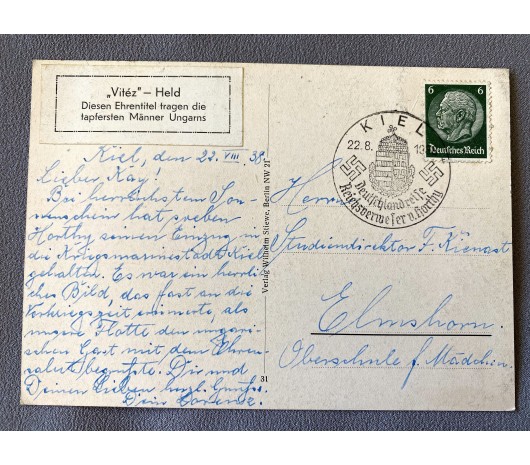 „Vitéz" – Held
Diesen Ehrentitel tragen die
tapfersten Männer Ungarns
Kiel, den 22. VIII. 38.
Lieber Kay!
Bei herrlichstem Son-
nenschein hat soeben
Horthy seinen Einzug in
die Kriegsmarinestadt Kiel
gehalten. Es war ein herrli-
ches Bild, das fast an die
Vorkriegszeit erinnerte, als
unsere Flotte den ungari-
schen Gast mit dem Ehren-
salut begrüßte. Dir und
Deinen Lieben herzl. Grüße.
Dein Lorenz.
Verlag Wilhelm Stiewe, Berlin NW 21
31
KIEL
22.8.
Deutschlandreise
Reichsverweser v. Horthy
6 6
Deutsches Reich
Herrn
Studiendirektor F. Kienast
Elmshorn.
Oberschule f. Mädchen.